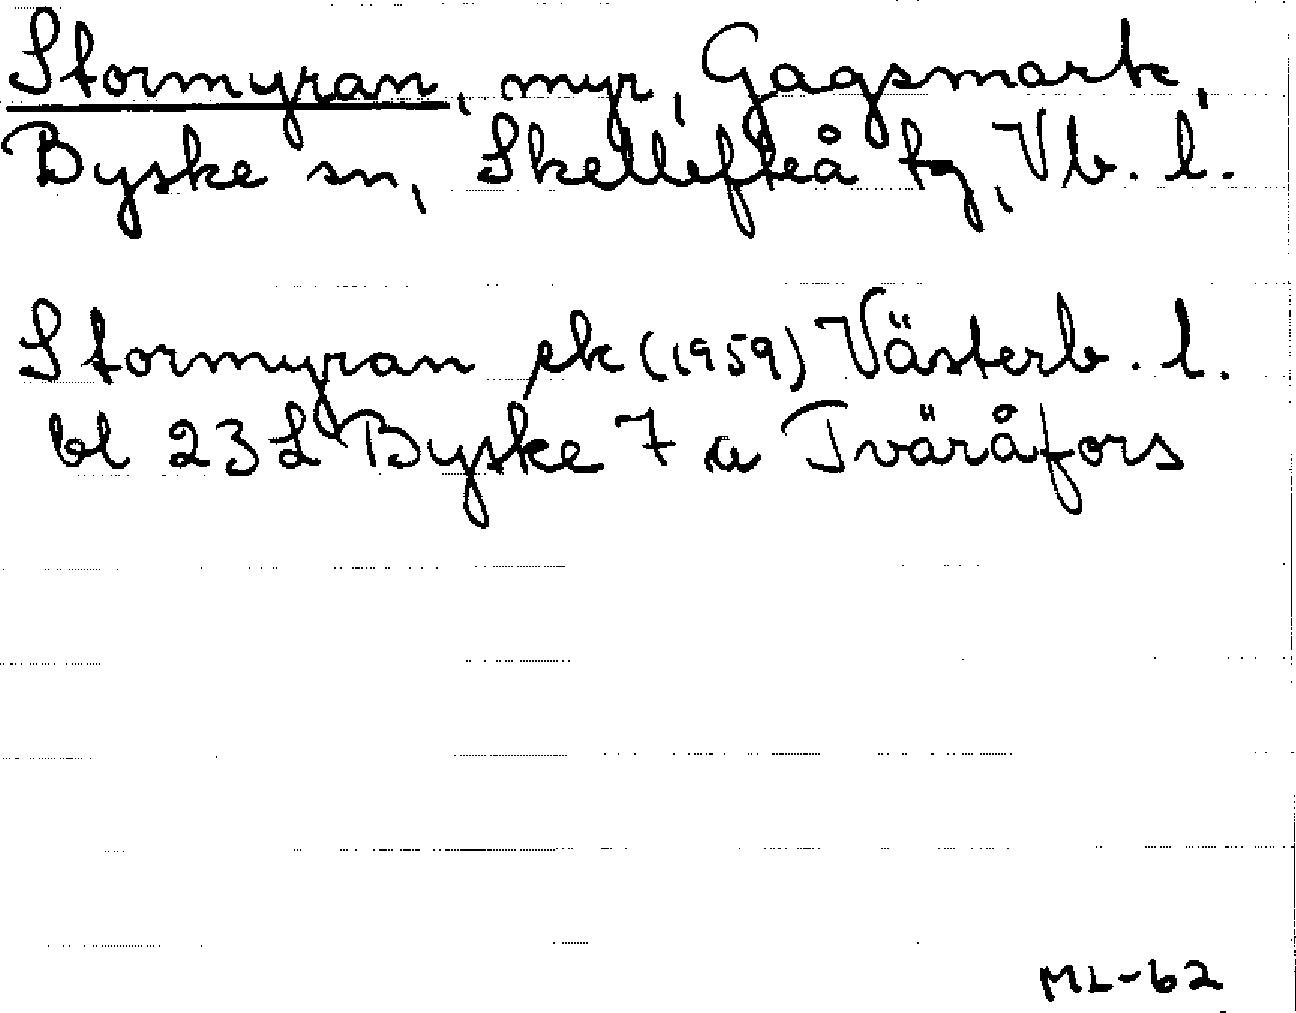 Stormyran, myr, Gagsmark,
Byske sn, Skellefteå tg, Vb. l.
Stormyran ek (1959) Västerb. l.
bl 23L Byske 7 a Tväråfors
ML-62